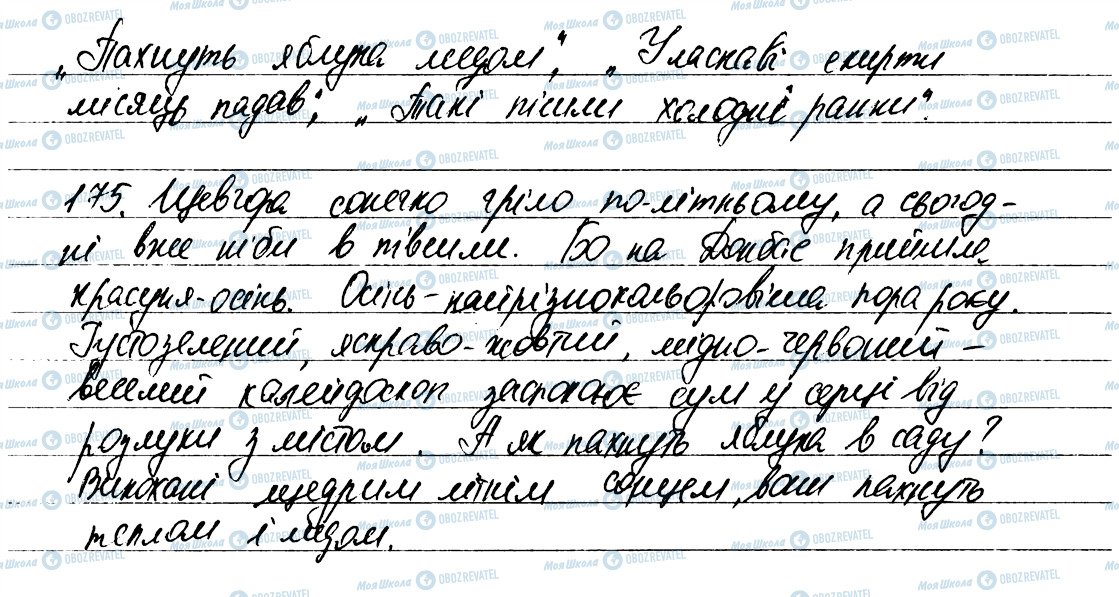 „Пахнуть яблука медом", „У ласкаві скирти
місяць падав", „Такі пішли холодні ранки".
175. Ще вчора сонечко гріло по-літньому, а сьогод-
ні вже ніби в півсили. Бо на Донбас прийшла
красуня-осінь. Осінь-найрізнокольоровіша пора року.
Густозелений, яскраво-жовтий, мідно-червоний -
веселий калейдоскоп заспокоює сум у серці від
розлуки з містом. А як пахнуть яблука в саду?
Викохані щедрим літнім сонцем, вони пахнуть
теплом і медом.